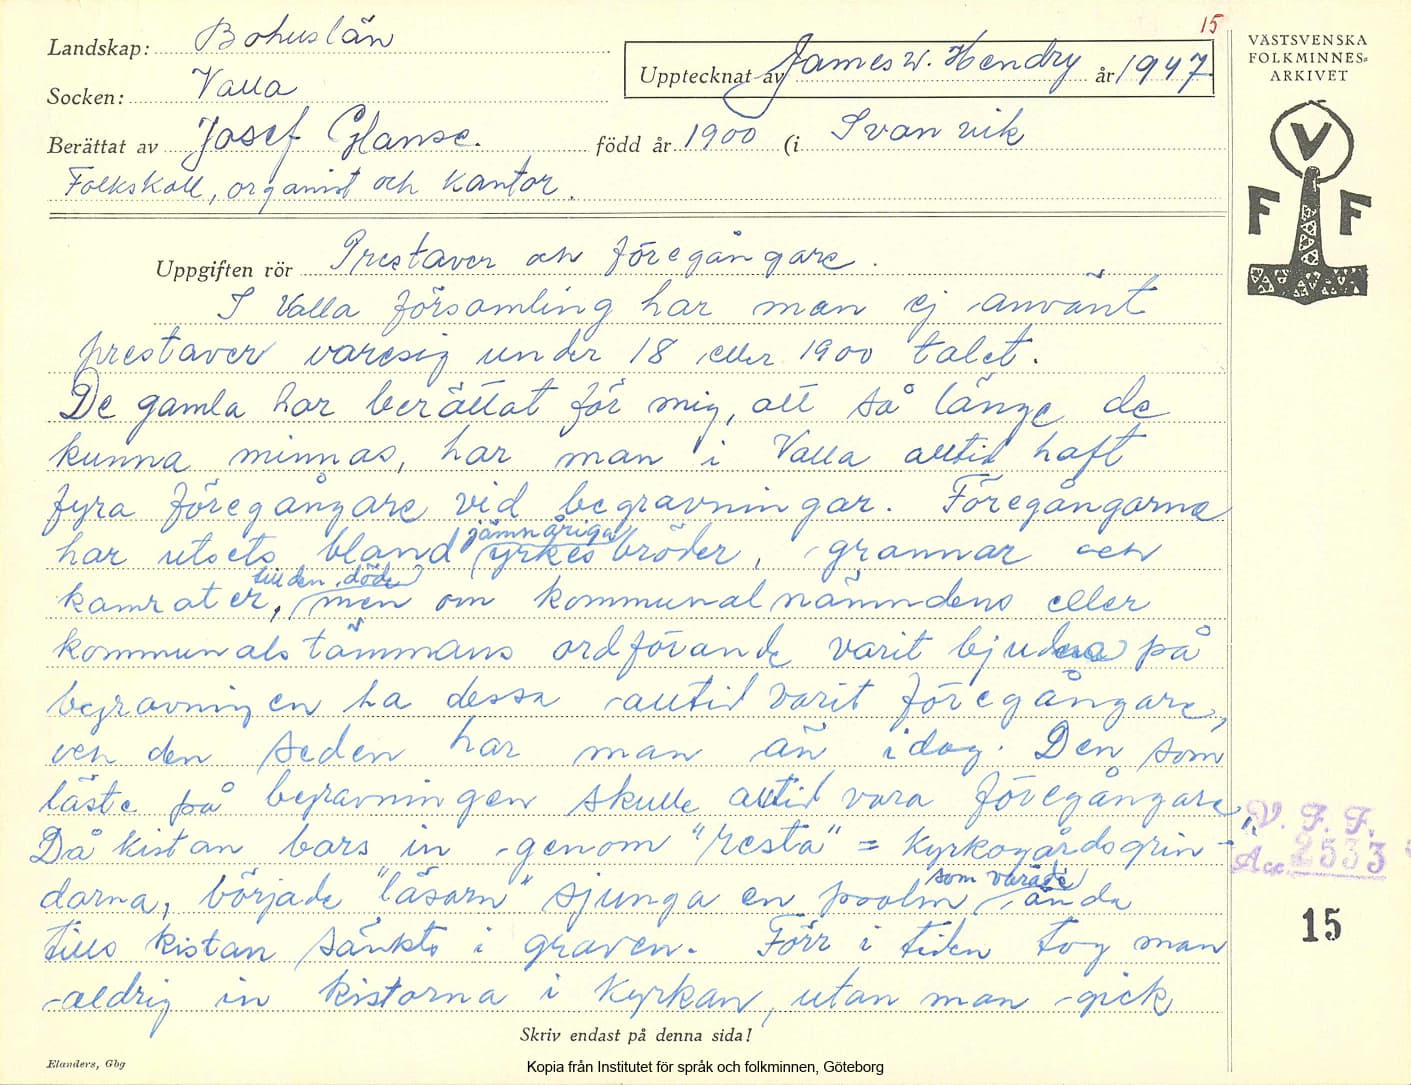 15
Landskap: Bohuslän
Socken: Valla
Upptecknat av James W. Hendry år 1947
Berättat av Josef Glanse. född år 1900 (i Svanvik
Folkskoll, organist och kantor.
VÄSTSVENSKA
FOLKMINNES=
ARKIVET
V
F F
Uppgiften rör Prestaver och föregångare.
I Valla församling har man ej använt
prestaver varesig under 18 eller 1900 talet.
De gamla har berättat för mig, att så länge de
kunna minnas, har man i Valla alltid haft
fyra föregångare vid begravningar. Föregångarne
jämnåriga
har utsets bland yrkesbröder, grannar och
till den döde
kamrater, men om kommunalnämndens eller
kommunalstämmans ordförande varit bjudna på
begravningen ha dessa alltid varit föregångare,
och den seden har man än idag. Den som
läste på begravningen skulle alltid vara föregångare.
Då kistan bars in genom "resta" = kyrkogårdsgrin-
som varade
darna, började "läsarn" sjunga en psalm, ända
tills kistan sänkts i graven. Förr i tiden tog man
aldrig in kistorna i kyrkan, utan man gick
V. F. F.
Acc. 2533
15
Skriv endast på denna sida!
Elanders, Gbg
Kopia från Institutet för språk och folkminnen, Göteborg